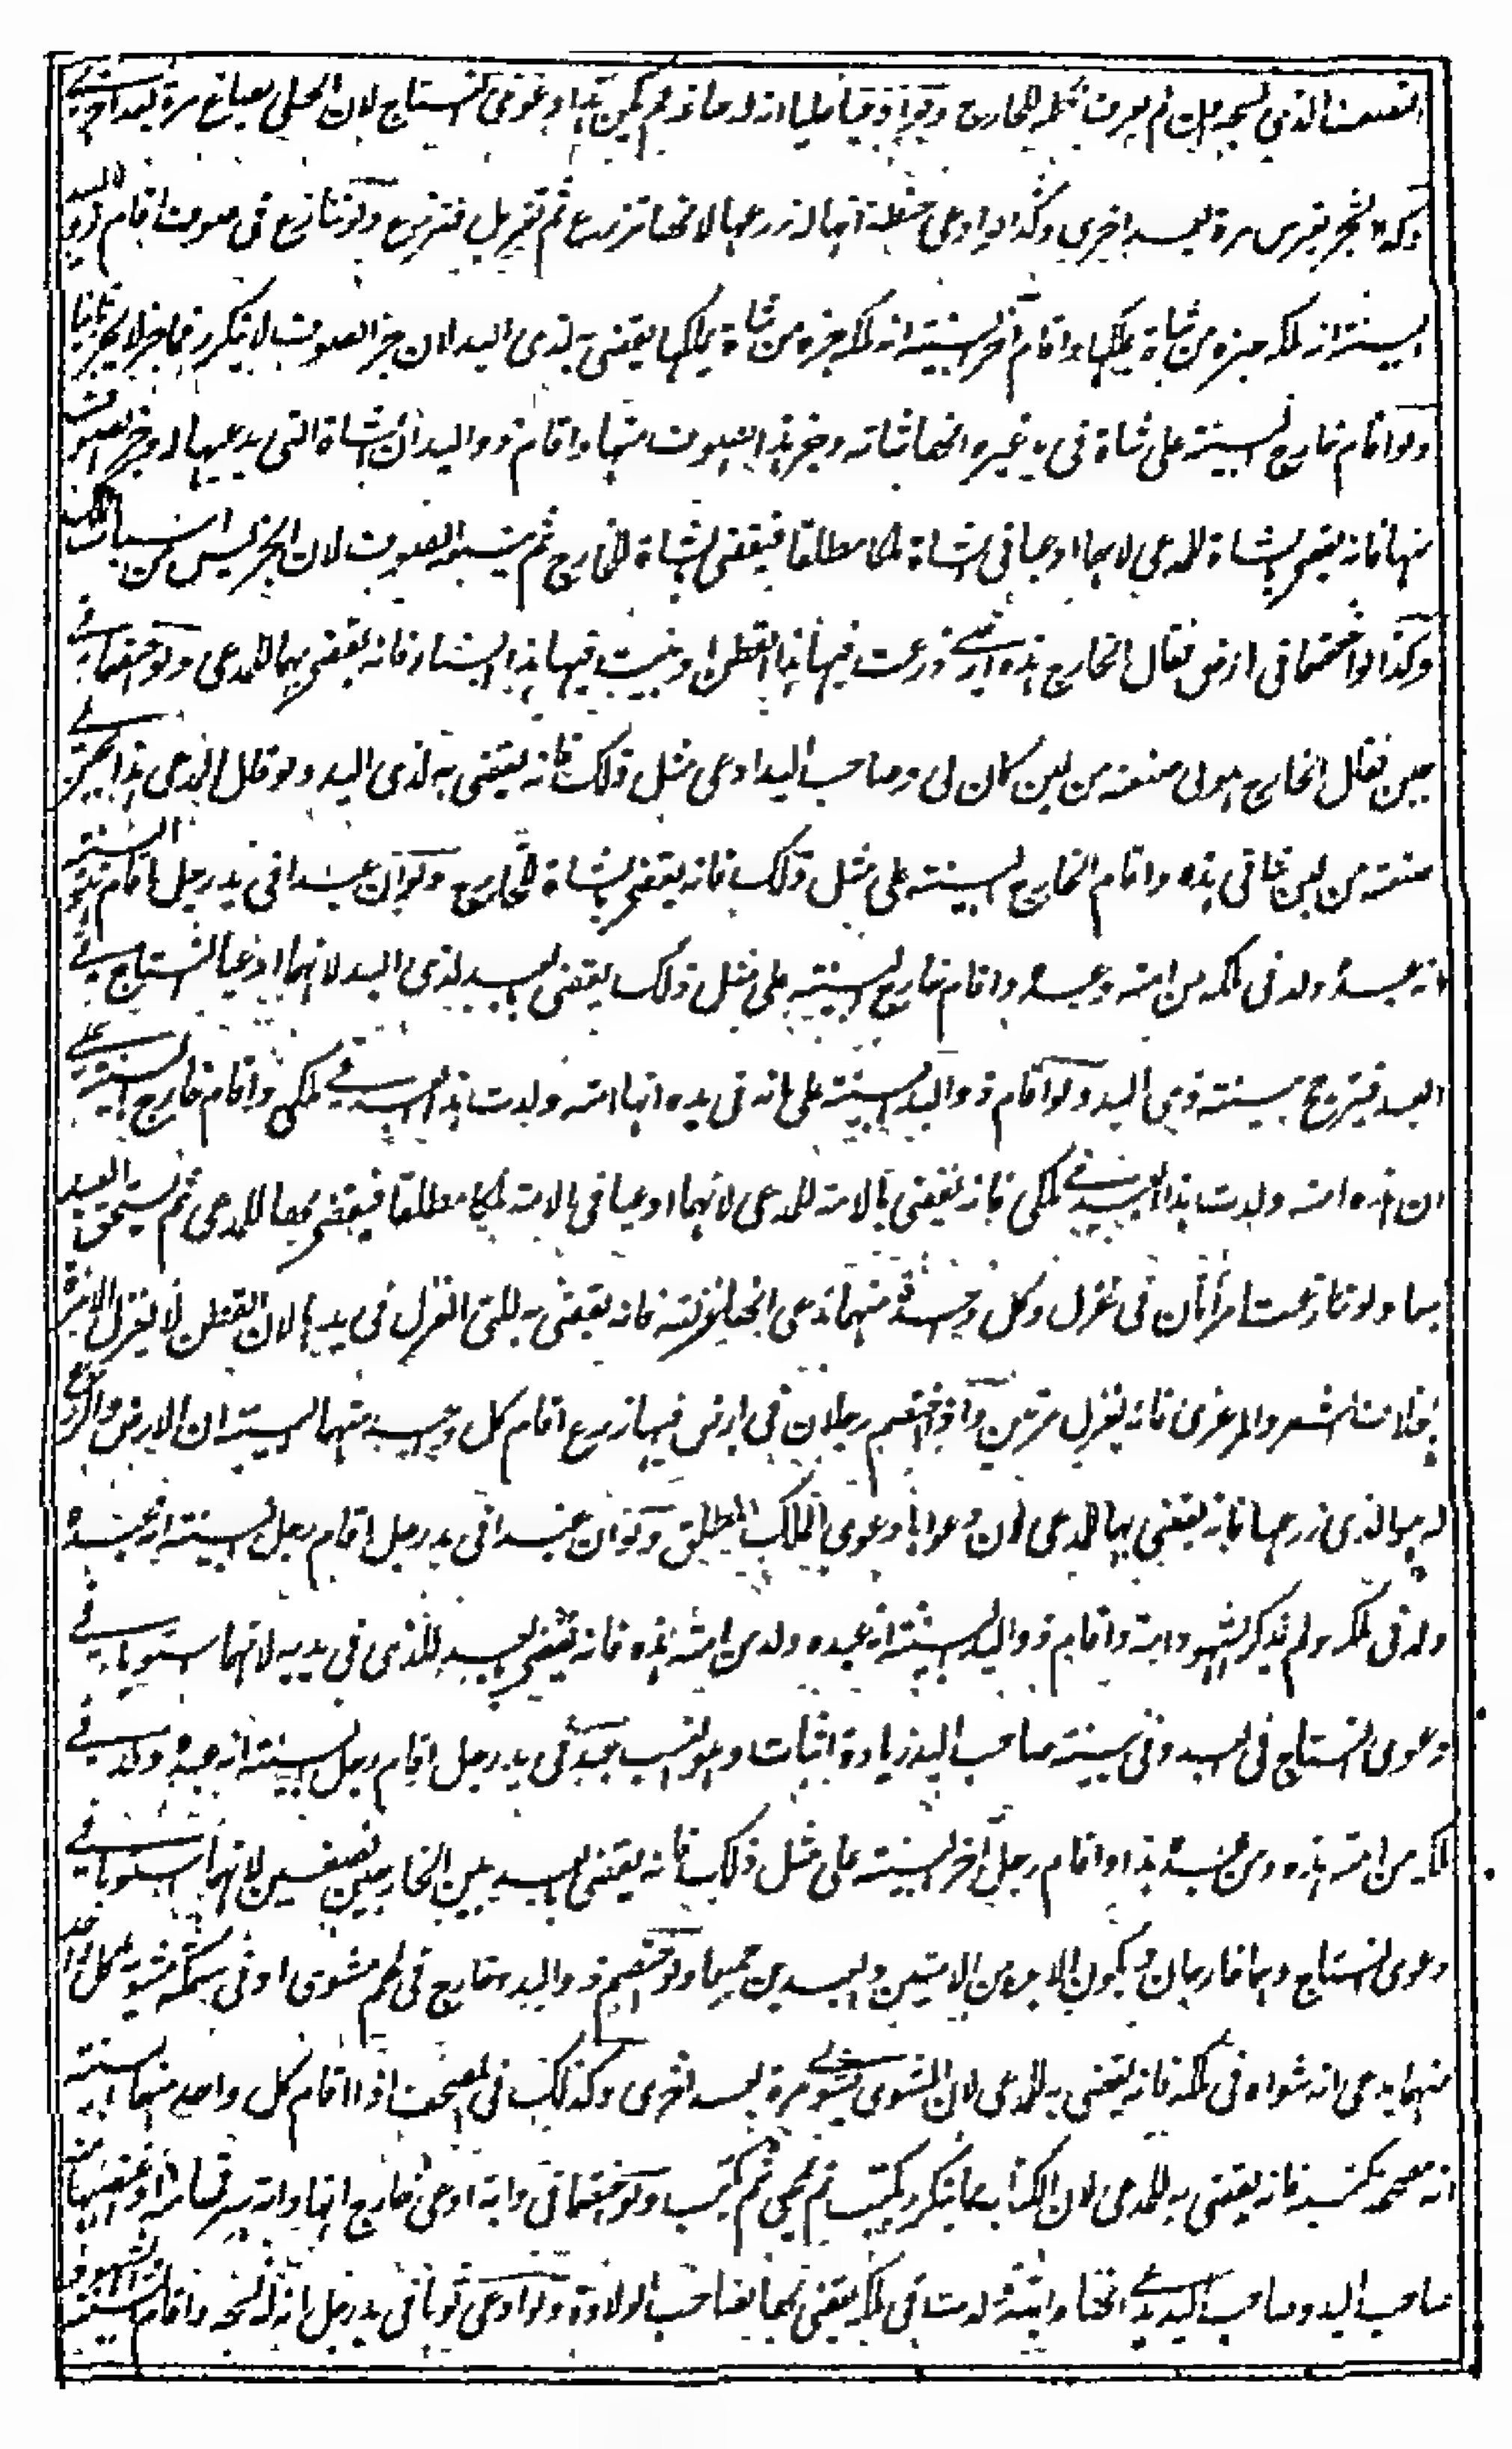 النصف الذي نسجه فان لم يعرف فكله للخارج ولو اختلفا حليا انه له صاغه لم يكن هذا دعوى النتاج لان الحلي يصاغ مرة بعد اخرى
وكذا الشجر يغرس مرة بعد اخرى وكذا لو ادعى حنطة انها له زرعها لانها تزرع ثم تغربل فتزرع ولو تنازع في صوف اقام ذو اليد
البينة انه ملكه جزه من شاة يملكها واقام آخر البينة انه ملكه جزه من شاة يملكها يقضى به لذي اليد لان جز الصوف لا يتكرر فما جز لا يجز ثانيا
ولو اقام خارج البينة على شاة في يد غيره انها شاته وجز هذا الصوف منها واقام ذو اليد ان الشاة التي يدعيها له وجز الصوف
منها فانه يقضى بالشاة للمدعي لانهما ادعيا في الشاة ملكا مطلقا فيقضى بالشاة للخارج ثم يتبعه الصوف لان الجز ليس من اسباب الملك
وكذا لو اختصما في ارض فقال الخارج هذه ارضي زرعت فيها هذا القطن او بنيت فيها هذا البناء فانه يقضى بهما للمدعي ولو اختصما في
جبن فقال الخارج هو لي صنعته من لبن كان لي وصاحب اليد ادعى مثل ذلك فانه يقضى به لذي اليد ولو قال الذي هذا الجبن لي
صنعته من لبن شاتي هذه واقام الخارج البينة على مثل ذلك فانه يقضى بالشاة للخارج ولو ان عبدا في يد رجل اقام ذو اليد البينة
انه عبده ولد في ملكه من امته وعبده واقام خارج البينة على مثل ذلك يقضى بالعبد لذي اليد لانهما ادعيا النتاج في
العبد فيترجح بينة ذي اليد ولو اقام ذو اليد البينة على امة في يده انها امته ولدت هذا العبد في ملكي واقام خارج البينة على
ان هذه امته ولدت هذا العبد في ملكي فانه يقضى بالامة للمدعي لانهما ادعيا في الامة ملكا مطلقا فيقضى بها للمدعي ثم يستحق العبد
بها ولو تنازعت امرأتان في غزل وكل واحدة منهما تدعي انها غزلته فانه يقضى به للتي الغزل في يدها لان القطن لا يغزل الا مرة
بخلاف الشعر والمرعزى فانه يغزل مرتين واذا اختصم رجلان في ارض فيها زرع اقام كل واحد منهما البينة ان الارض والزرع
له هو الذي زرعها فانه يقضى بها للمدعي لان دعواهما دعوى الملك المطلق ولو ان عبدا في يد رجل اقام رجل البينة انه عبده
ولد في ملكه ولم يذكر الشهود امه واقام ذو اليد البينة انه عبده ولد من امته هذه فانه يقضى بالعبد للذي في يديه لانهما استويا في
دعوى النتاج في العبد وفي بينة صاحب اليد زيادة اثبات وهو النسب عبد في يد رجل اقام رجل البينة انه عبده ولد في
ملكه من امته هذه ومن عبده هذا واقام رجل آخر البينة على مثل ذلك فانه يقضى بالعبد بين الخارجين نصفين لانهما استويا في
دعوى النتاج وهما خارجان ويكون الابن من الامتين والعبدين جميعا ولو اختصم ذو اليد وخارج في لحم مشوي او في سمكة مشوية كل واحد
منهما يدعي انه شواه في ملكه فانه يقضى به للمدعي لان الشوي يشوى مرة بعد اخرى وكذلك في المصحف اذا اقام كل واحد منهما البينة
انه مصحفه كتبه فانه يقضى به للمدعي لان الكتاب مما يتكرر يكتب ثم يمحى ثم يكتب ولو اختصما في دابة ادعى خارج انها دابته سرقها منه او غصبها منه
صاحب اليد وصاحب اليد يدعي انها دابته ولدت في ملكه يقضى بها لصاحب الولادة ولو ادعى ثوبا في يد رجل انه له نسجه واقام البينة